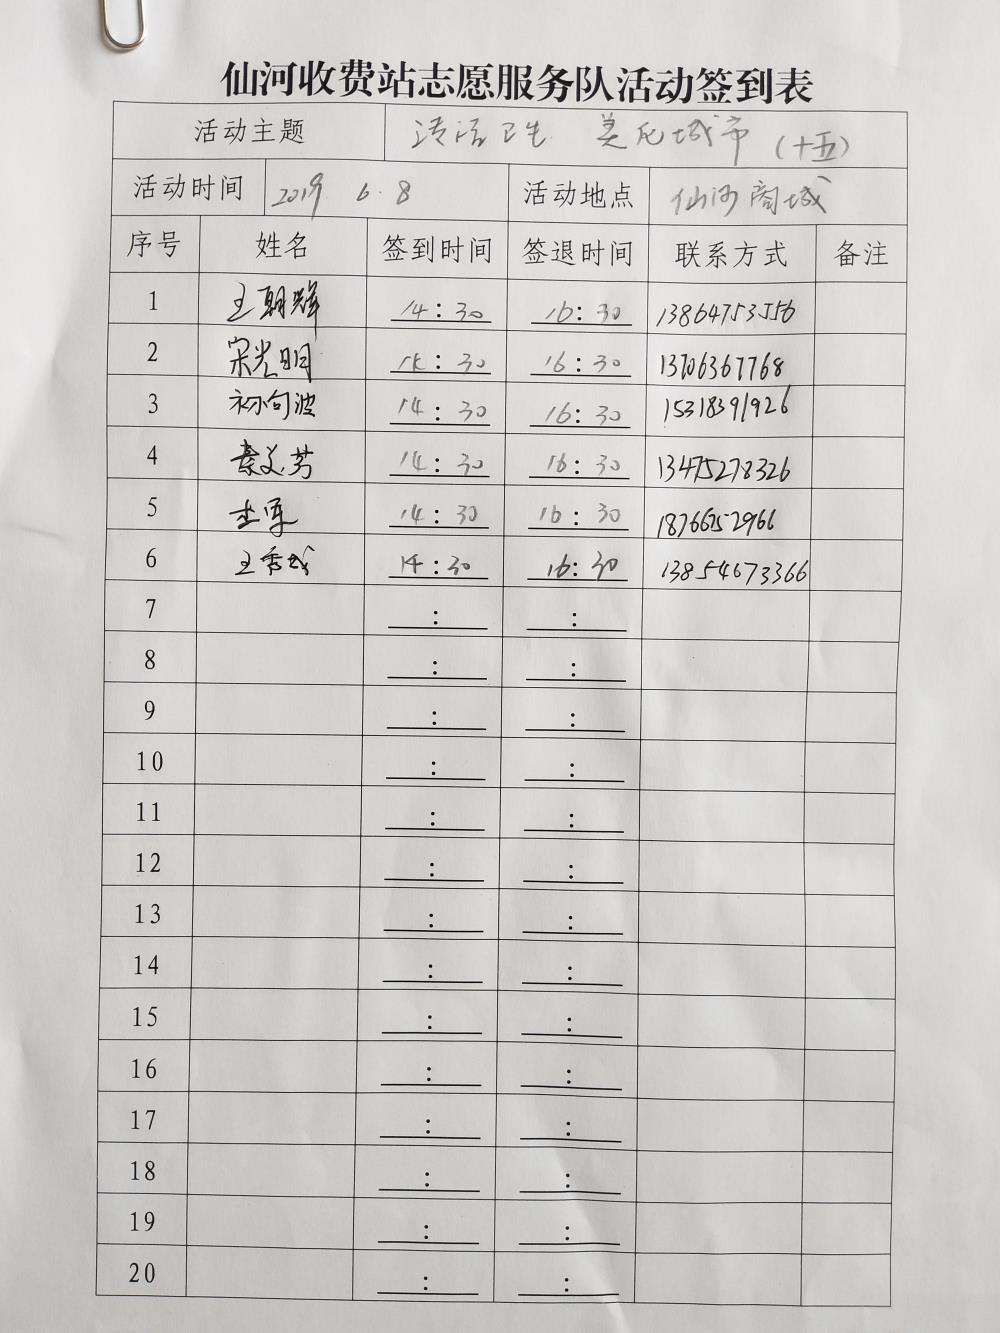 仙河收费站志愿服务队活动签到表
活动主题 清洁卫生 美化城市 (十五)
活动时间 2019 6.8 活动地点 仙河商城
序号 姓名 签到时间 签退时间 联系方式 备注
1 王朝辉 14:30 16:30 13864753556
2 宋光明 14:30 16:30 13706367768
3 初向波 14:30 16:30 15318391926
4 秦文芳 14:30 16:30 13475278326
5 14:30 16:30 18766752966
6 王秀城 14:30 16:30 13854673366
7 : :
8 : :
9 : :
10 : :
11 : :
12 : :
13 : :
14 : :
15 : :
16 : :
17 : :
18 : :
19 : :
20 : :